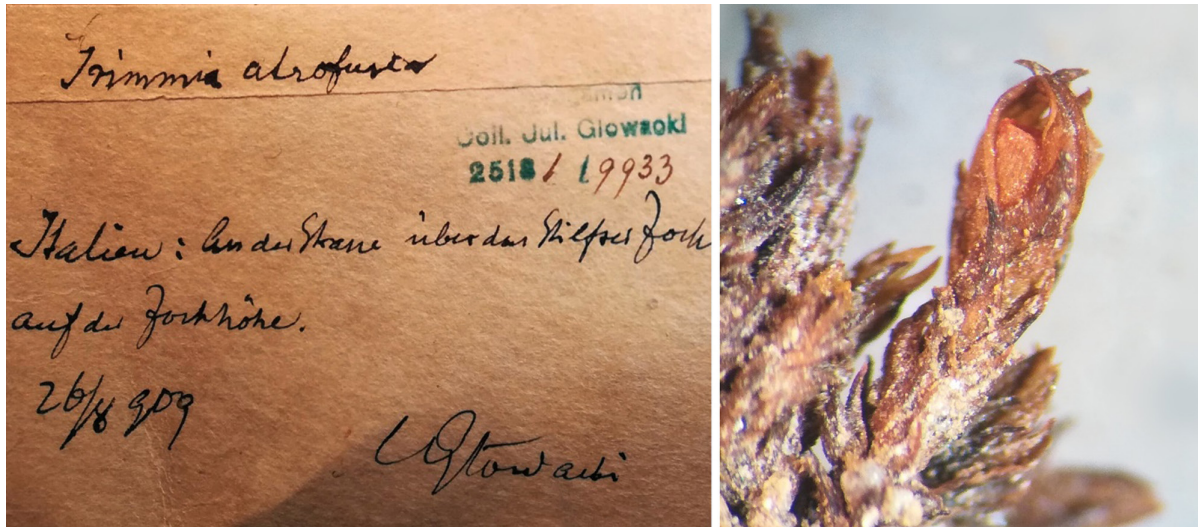 Grimmia atrofusca
Coll. Jul. Glowacki
2518 / 19933
Italien: An der Strasse über das Stilfser Joch
auf der Jochhöhe.
26/8 909
Glowacki